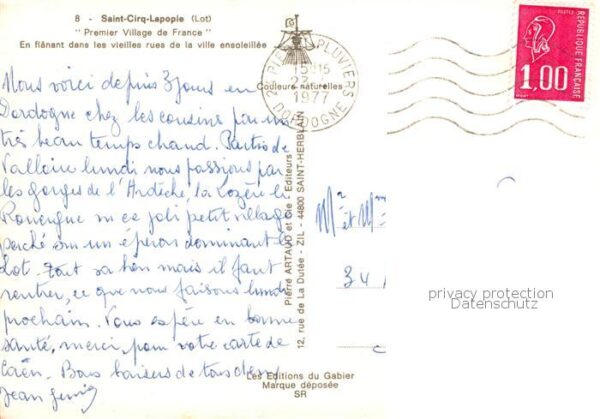 8 - Saint-Cirq-Lapopie (Lot)
" Premier Village de France "
En flânant dans les vieilles rues de la ville ensoleillée
Couleurs naturelles
PLUVIERS
15H15
1977
DORDOGNE
POSTES
RÉPUBLIQUE FRANÇAISE
1,00
Nous voici depuis 3 jours en
Dordogne chez les cousins par un
très beau temps chaud. Partis de
Valloire lundi nous passions par
les gorges de l'Ardèche, la Lozère le
Rouergue ce joli petit village
perché sur un éperon dominant le
Lot. Tout va bien mais il faut
rentrer, ce que nous faisons lundi
prochain. Vous espère en bonne
santé, merci, pour votre carte de
Caën. Bons baisers de tous deux
Jean
Pierre ARTAUD et Cie - Editeurs
12, rue de La Dutée - ZIL - 44800 SAINT-HERBLAIN
Mr et Mme
34
privacy protection
Datenschutz
Les Editions du Gabier
Marque déposée
SR